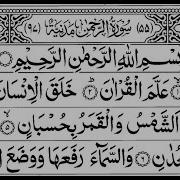 (٥٥) سُوْرَةُ الرَّحْمٰنِ مَدَنِيَّةٌ (٩٧)
سْمِ اللهِ الرَّحْمٰنِ الرَّحِيْمِ
عَلَّمَ الْقُرْاٰنَ ۝٢ خَلَقَ الْاِنْسَانَ
اَلشَّمْسُ وَالْقَمَرُ بِحُسْبَانٍ ۝٥
جُدٰنِ ۝٦ وَالسَّمَآءَ رَفَعَهَا وَوَضَعَ